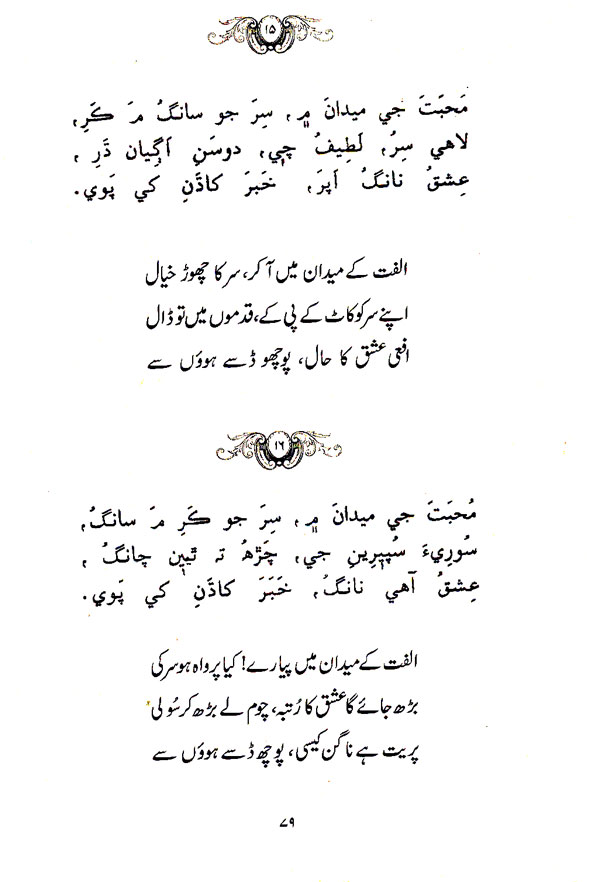 ۱۵
مَحبَتَ جي ميدانَ ۾، سِرَ جو سانگُ مَ ڪَرِ،
لاهي سِرُ، لَطِيفُ چي، دوسَنِ اَڳيان ڌَرِ ،
عِشقُ نانگُ اَپَرَ، خَبَرَ کاڌَنِ کي پَوي.
الفت کے میدان میں آ کر، سر کا چھوڑ خیال
اپنے سر کو کاٹ کے پی کے، قدموں میں تو ڈال
افعی عشق کا حال، پوچھو ڈسے ہوؤں سے
۱۶
مُحبَتَ جي ميدانَ ۾، سِرَ جو ڪَرِ مَ سانگُ،
سُورِيءَ سُپيرِينِ جي، چَڙهُ تہ ٿيين چانگُ ،
عِشقُ آهي نانگُ، خَبَرَ کاڌَنِ کي پَوي.
الفت کے میدان میں پیارے! کیا پرواہ ہو سر کی
بڑھ جائے گا عشق کا رُتبہ، چوم لے بڑھ کر سُولی
پریت ہے ناگن کیسی، پوچھ ڈسے ہوؤں سے
۷۹